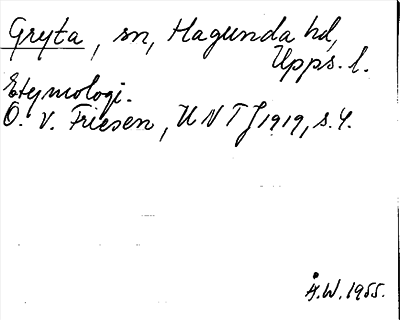 Gryta, sn, Hagunda hd,
Upps. l.
Etymologi.
O. v. Friesen, UNT 1919, s. 4.
Å.W. 1955.